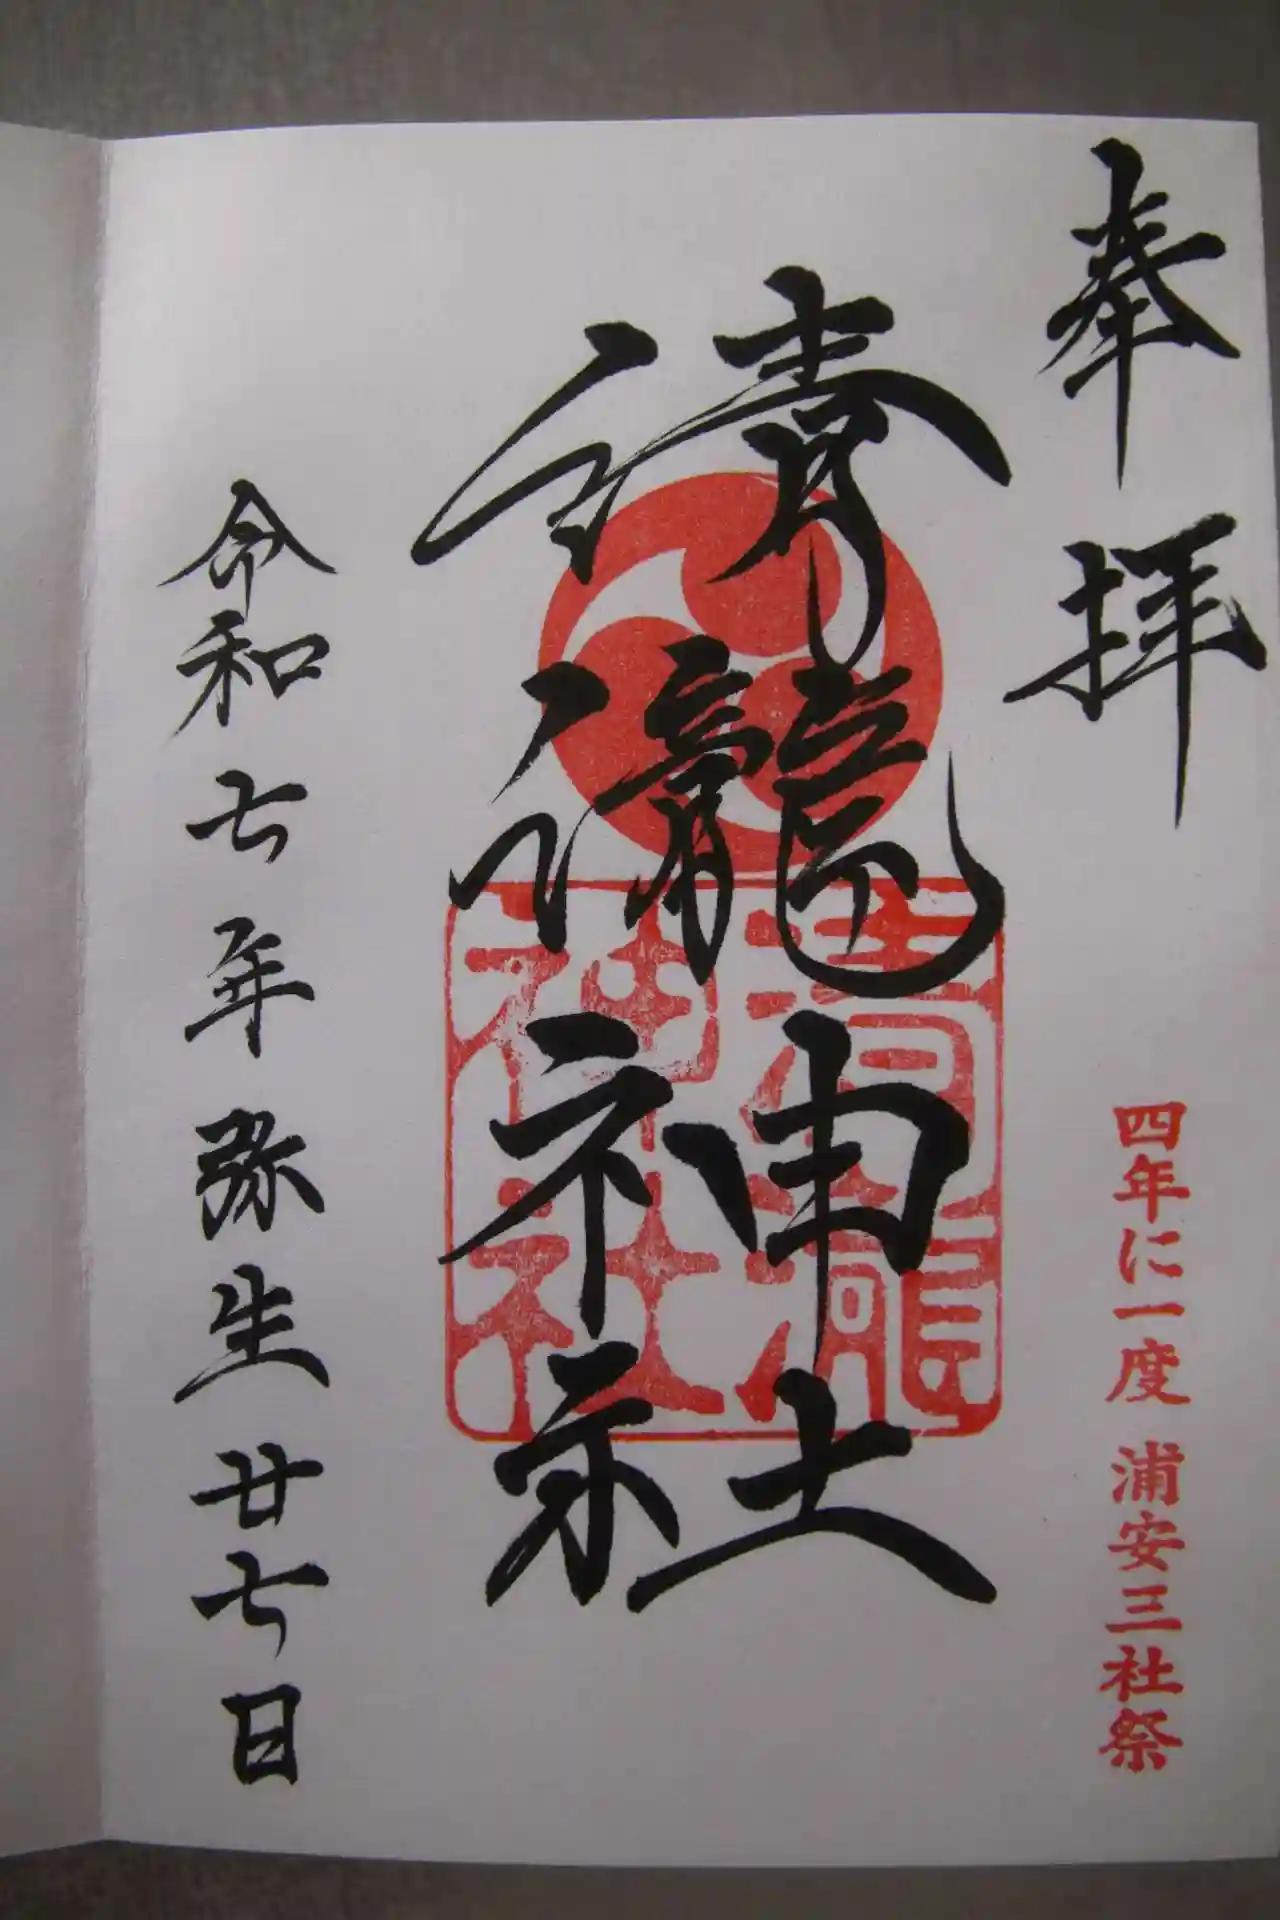 奉拝
四年に一度 浦安三社祭
清瀧神社
清瀧
神社
令和七年弥生廿七日